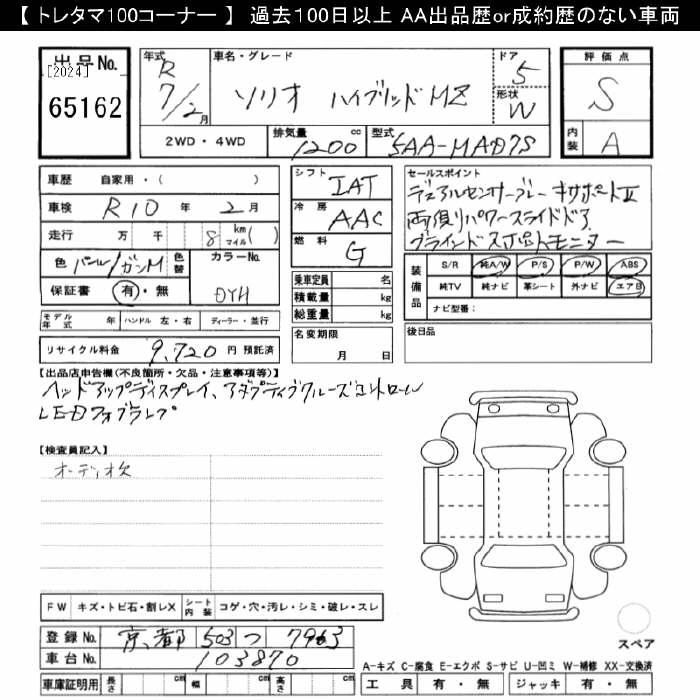 【 トレタマ100コーナー 】 過去100日以上 AA出品歴or成約歴のない車両
出品No.
[2024]
65162
年式 R 7/2月
車名・グレード ソリオ ハイブリッドMZ
ドア 5
形状 W
評価点 S
内装 A
2WD・4WD
排気量 1200 cc
型式 5AA-MAD7S
車歴 自家用・( )
車検 R10 年 2 月
走行 万 千 8 km マイル( )
色 パール/ガンM 色替
カラーNo. DYH
保証書 有・無
モデル年式 年 ハンドル 左・右 ディーラー・並行
リサイクル料金 9,720 円 預託済
シフト IAT
冷房 AAC
燃料 G
乗車定員 名
積載量 kg
総重量 kg
名変期限 月 日
セールスポイント
デュアルセンサーブレーキサポートⅡ
両側パワースライドドア
ブラインドスポットモニター
装備品 S/R 純A/W P/S P/W ABS
純TV 純ナビ 革シート 外ナビ エアB
ナビ型番:
後日品
【出品店申告欄(不良箇所・欠品・注意事項等)】
ヘッドアップディスプレイ、アダプティブクルーズコントロール
LEDフォグランプ
【検査員記入】
オーディオ欠
FW キズ・トビ石・割レX シート内装 コゲ・穴・汚レ・シミ・破レ・スレ
登録No. 京都 503 つ 7963
車台No. 103870
車庫証明用 長さ cm 幅 cm 高さ cm
スペア
A-キズ C-腐食 E-エクボ S-サビ U-凹ミ W-補修 XX-交換済
工具 有・無 ジャッキ 有・無